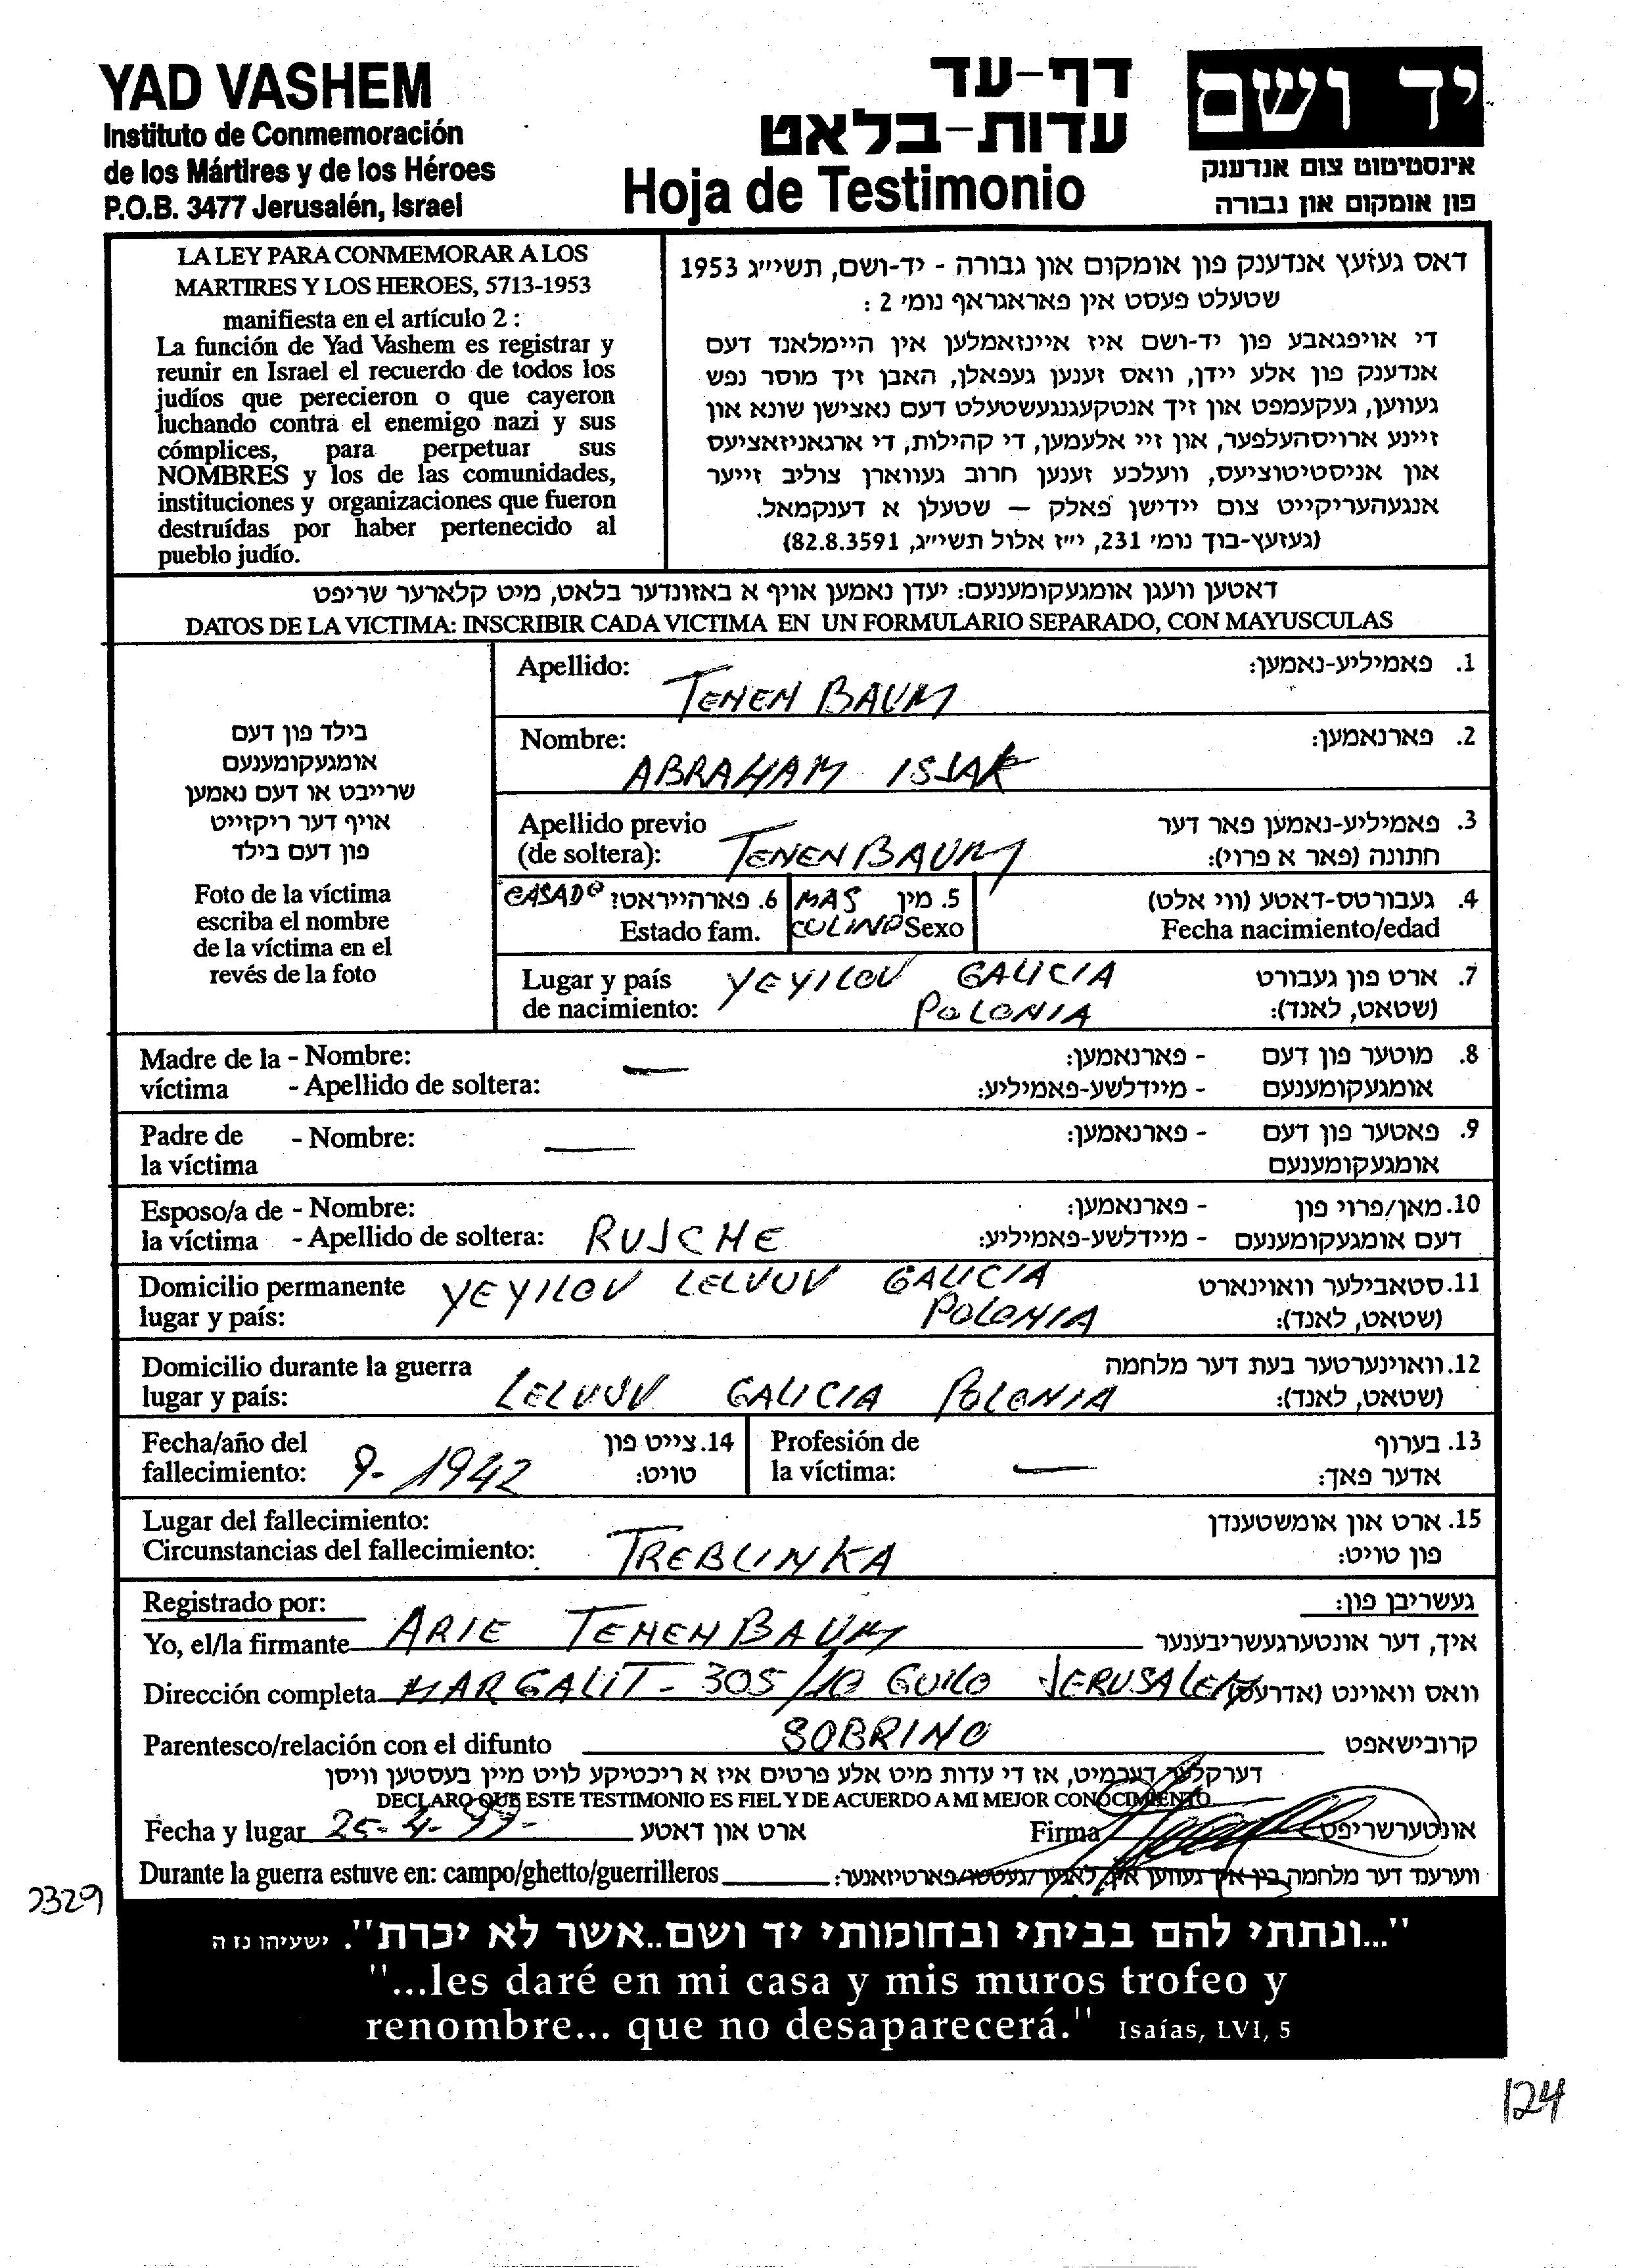 YAD VASHEM
Instituto de Conmemoración
de los Mártires y de los Héroes
P.O.B. 3477 Jerusalén, Israel
דף-עד
עדות-בלאט
Hoja de Testimonio
יד ושם
אינסטיטוט צום אנדענק
פון אומקום און גבורה
LA LEY PARA CONMEMORAR A LOS
MARTIRES Y LOS HEROES, 5713-1953
manifiesta en el artículo 2 :
La función de Yad Vashem es registrar y
reunir en Israel el recuerdo de todos los
judíos que perecieron o que cayeron
luchando contra el enemigo nazi y sus
cómplices, para perpetuar sus
NOMBRES y los de las comunidades,
instituciones y organizaciones que fueron
destruídas por haber pertenecido al
pueblo judío.
דאס געזעץ אנדענק פון אומקום און גבורה - יד-ושם, תשי״ג 1953
שטעלט פעסט אין פאראגראף נומ׳ 2 :
די אויפגאבע פון יד-ושם איז איינזאמלען אין היימלאנד דעם
אנדענק פון אלע יידן, וואס זענען געפאלן, האבן זיך מוסר נפש
געווען, געקעמפט און זיך אנטקעגנגעשטעלט דעם נאצישן שונא און
זיינע ארויסהעלפער, און זיי אלעמען, די קהילות, די ארגאניזאציעס
און אניסטיטוציעס, וועלכע זענען חרוב געווארן צוליב זייער
אנגעהעריקייט צום יידישן פאלק – שטעלן א דענקמאל.
(געזעץ-בוך נומ׳ 231, י״ז אלול תשי״ג, 82.8.3591)
דאטען וועגן אומגעקומענעם: יעדן נאמען אויף א באזונדער בלאט, מיט קלארער שריפט
DATOS DE LA VICTIMA: INSCRIBIR CADA VICTIMA EN UN FORMULARIO SEPARADO, CON MAYUSCULAS
בילד פון דעם
אומגעקומענעם
שרייבט או דעם נאמען
אויף דער ריקזייט
פון דעם בילד
Foto de la víctima
escriba el nombre
de la víctima en el
revés de la foto
Apellido: TENENBAUM 1. פאמיליע-נאמען:
Nombre: ABRAHAM ISJAK 2. פארנאמען:
Apellido previo 3. פאמיליע-נאמען פאר דער
(de soltera): TENENBAUM חתונה (פאר א פרוי):
CASADO 6. פארהייראטט? MAS 5. מין 4. געבורטס-דאטע (ווי אלט)
Estado fam. CULINO Sexo Fecha nacimiento/edad
Lugar y país YEYILOV GALICIA 7. ארט פון געבורט
de nacimiento: POLONIA (שטאט, לאנד):
Madre de la - Nombre: — - פארנאמען: 8. מוטער פון דעם
víctima - Apellido de soltera: - מיידלשע-פאמיליע: אומגעקומענעם
Padre de - Nombre: — - פארנאמען: 9. פאטער פון דעם
la víctima אומגעקומענעם
Esposo/a de - Nombre: - פארנאמען: 10. מאן/פרוי פון
la víctima - Apellido de soltera: RUJCHE - מיידלשע-פאמיליע: דעם אומגעקומענעם
Domicilio permanente YEYILOV LELVUV GALICIA 11. סטאבילער וואוינארט
lugar y país: POLONIA (שטאט, לאנד):
Domicilio durante la guerra 12. וואוינערטער בעת דער מלחמה
lugar y país: LELVUV GALICIA POLONIA (שטאט, לאנד):
Fecha/año del 14. צייט פון Profesión de 13. בערוף
fallecimiento: 9-1942 טויט: la víctima: — אדער פאך:
Lugar del fallecimiento: 15. ארט און אומשטענדן
Circunstancias del fallecimiento: TREBLINKA פון טויט:
Registrado por: געשריבן פון:
Yo, el/la firmante ARIE TENENBAUM איך, דער אונטערגעשריבענער
Dirección completa MARGALIT - 305/10 GUILO JERUSALEM וואס וואוינט (אדרעס)
Parentesco/relación con el difunto SOBRINO קרובישאפט
דערקלער דערמיט, אז די עדות מיט אלע פרטים איז א ריכטיקע לויט מיין בעסטען וויסן
DECLARO QUE ESTE TESTIMONIO ES FIEL Y DE ACUERDO A MI MEJOR CONOCIMIENTO
Fecha y lugar 25-4-99- ארט און דאטע Firma אונטערשריפט
Durante la guerra estuve en: campo/ghetto/guerrilleros ווערענד דער מלחמה בין איך געווען אין לאגער/געטטא/פארטיזאנער:
2329
"...ונתתי להם בביתי ובחומותי יד ושם..אשר לא יכרת". ישעיהו נז ה
"...les daré en mi casa y mis muros trofeo y
renombre... que no desaparecerá." Isaías, LVI, 5
124